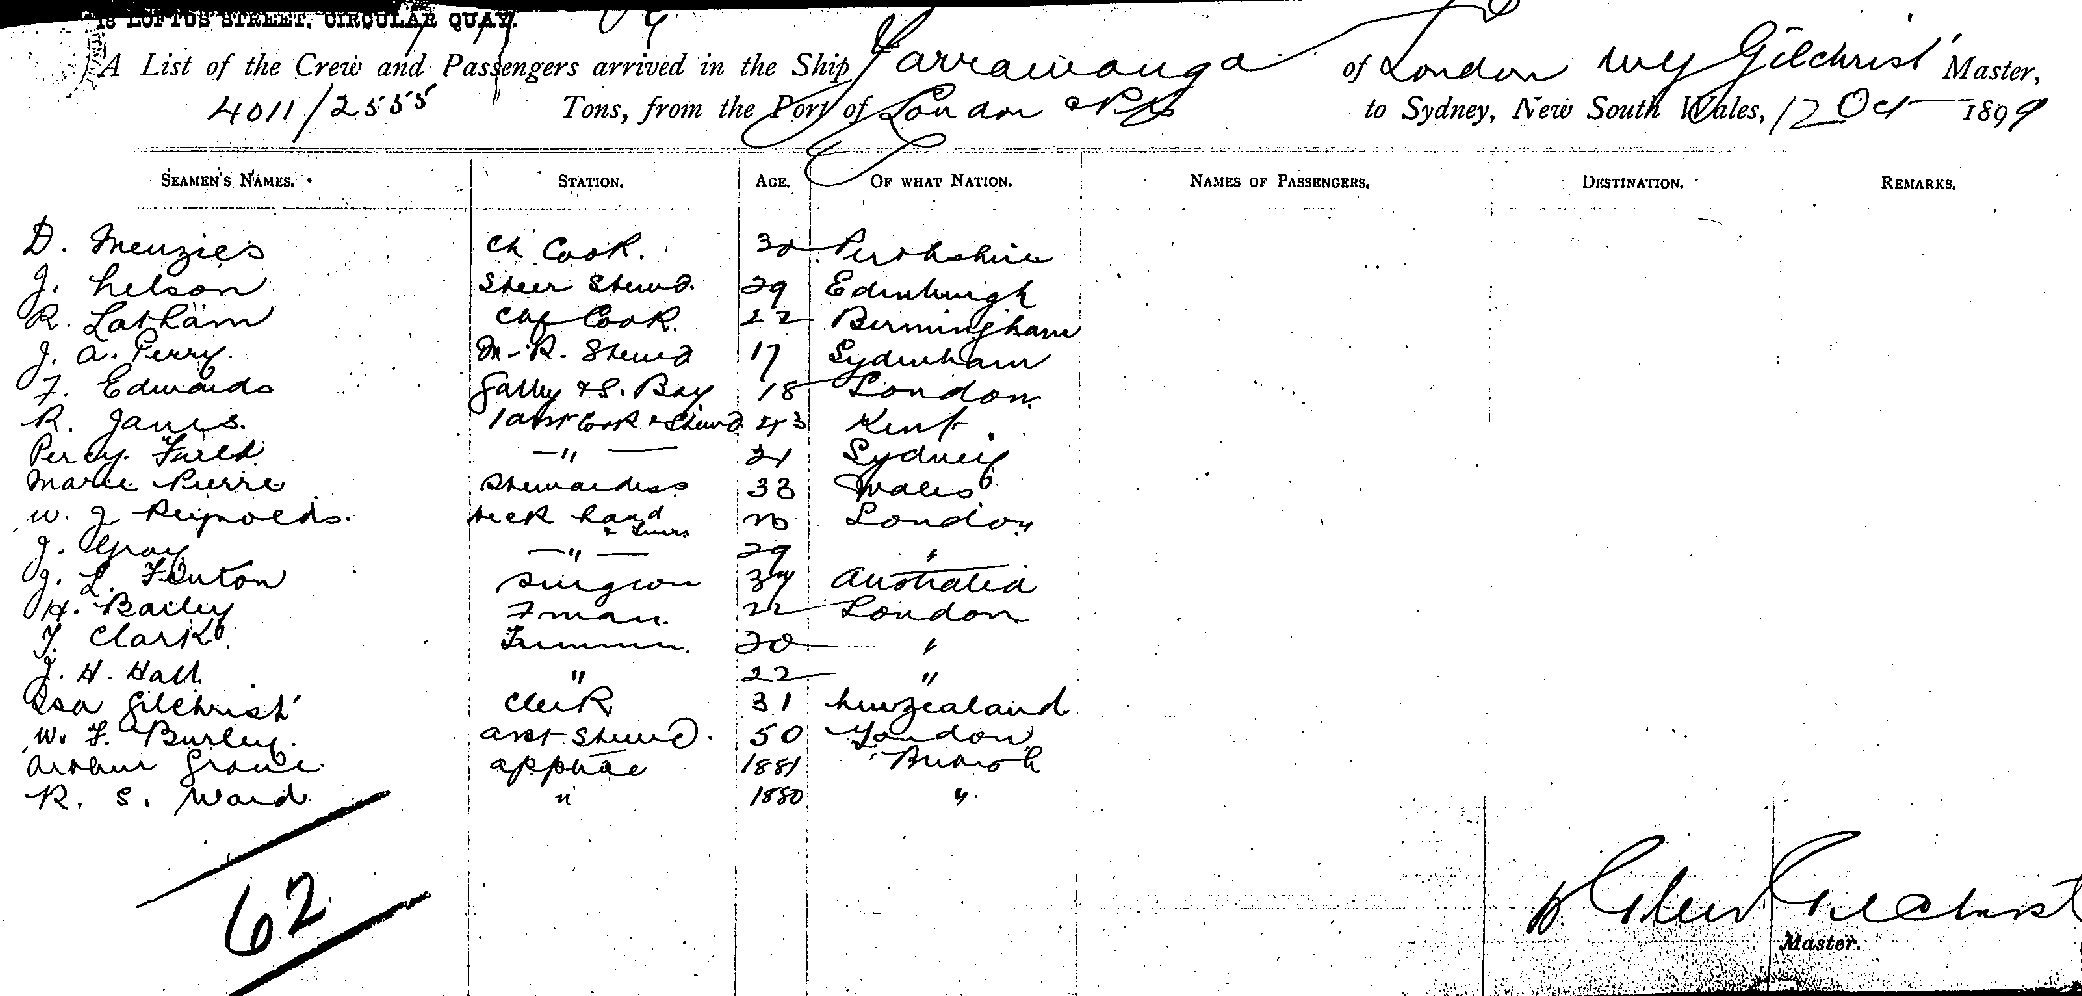 18 LOFTUS STREET, CIRCULAR QUAY.
A List of the Crew and Passengers arrived in the Ship Yarrawonga of London Wy Gilchrist Master,
4011/2555 Tons, from the Port of London to Sydney, New South Wales, 12 Oct 1899
SEAMEN'S NAMES. STATION. AGE. OF WHAT NATION. NAMES OF PASSENGERS. DESTINATION. REMARKS.
D. Menzies Ch Cook. 30 Perthshire
J. Nelson Steer Stewd. 29 Edinburgh
R. Latham Cook. 22 Birmingham
J. A. Perry. M. R. Stewd 17 Sydenham
F. Edwards Galley & S. Boy 18 London
R. James. 1 asst Cook & Stewd 43 Kent.
Percy Field. — " — 21 Sydney
Marie Pierre Stewardess 33 Wales
W. J Reynolds. deck hand London
J. Gray — " — 29 "
J. L. Fenton Surgeon 34 Australia
H. Bailey Fman. 22 London
T. Clark. Trimmer. 20 "
J. H. Hall " 22 "
Isa Gilchrist Clerk 31 Newzealand
W. F. Burley. asst Stewd. 50 London
Arthur apptice 1881 British
R. S. Ward " 1880 "
62
Gilchrist
Master.